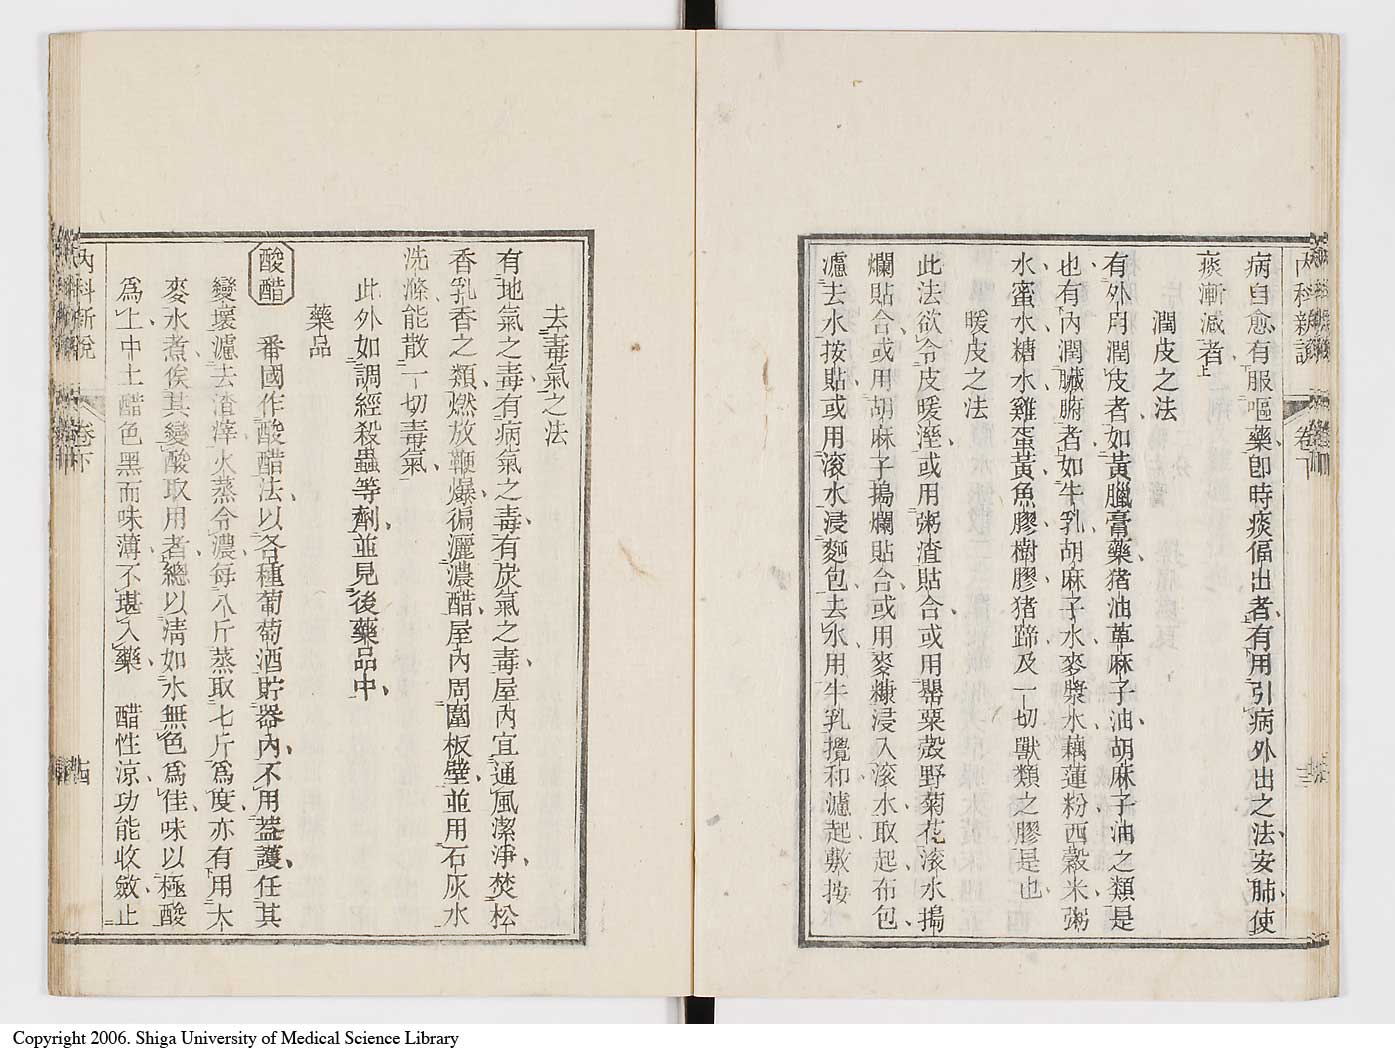 內科新說
卷下
病自愈有服嘔藥卽時痰偪出者有用引病外出之法安肺使
痰漸減者
潤皮之法
有外用潤皮者如黃臘膏藥猪油萆麻子油胡麻子油之類是
也有內潤臟腑者如牛乳胡麻子水麥漿水藕蓮粉西穀米粥
水蜜水糖水雞蛋黃魚膠樹膠猪蹄及一切獸類之膠是也
暖皮之法
此法欲令皮暖溼或用粥渣貼合或用罌粟殻野菊花滚水搗
爛貼合或用胡麻子搗爛貼合或用麥糠浸入滚水取起布包
濾去水按貼或用滚水浸麵包去水用牛乳攪和濾起敷按
去毒氣之法
有地氣之毒有病氣之毒有炭氣之毒屋內宜通風潔淨焚松
香乳香之類燃放鞭爆徧灑濃醋屋內周圍板壁並用石灰水
洗滌能散一切毒氣
此外如調經殺蟲等劑並見後藥品中
藥品
酸醋 番國作酸醋法以各種葡萄酒貯器內不用葢護任其
變壞濾去渣滓火蒸令濃每八斤蒸取七斤爲度亦有用大
麥水煮俟其變酸取用者總以淸如水無色爲佳味以極酸
爲上中土醋色黑而味薄不堪入藥 醋性凉功能收斂止
內科新說
卷下
十四
Copyright 2006. Shiga University of Medical Science Library